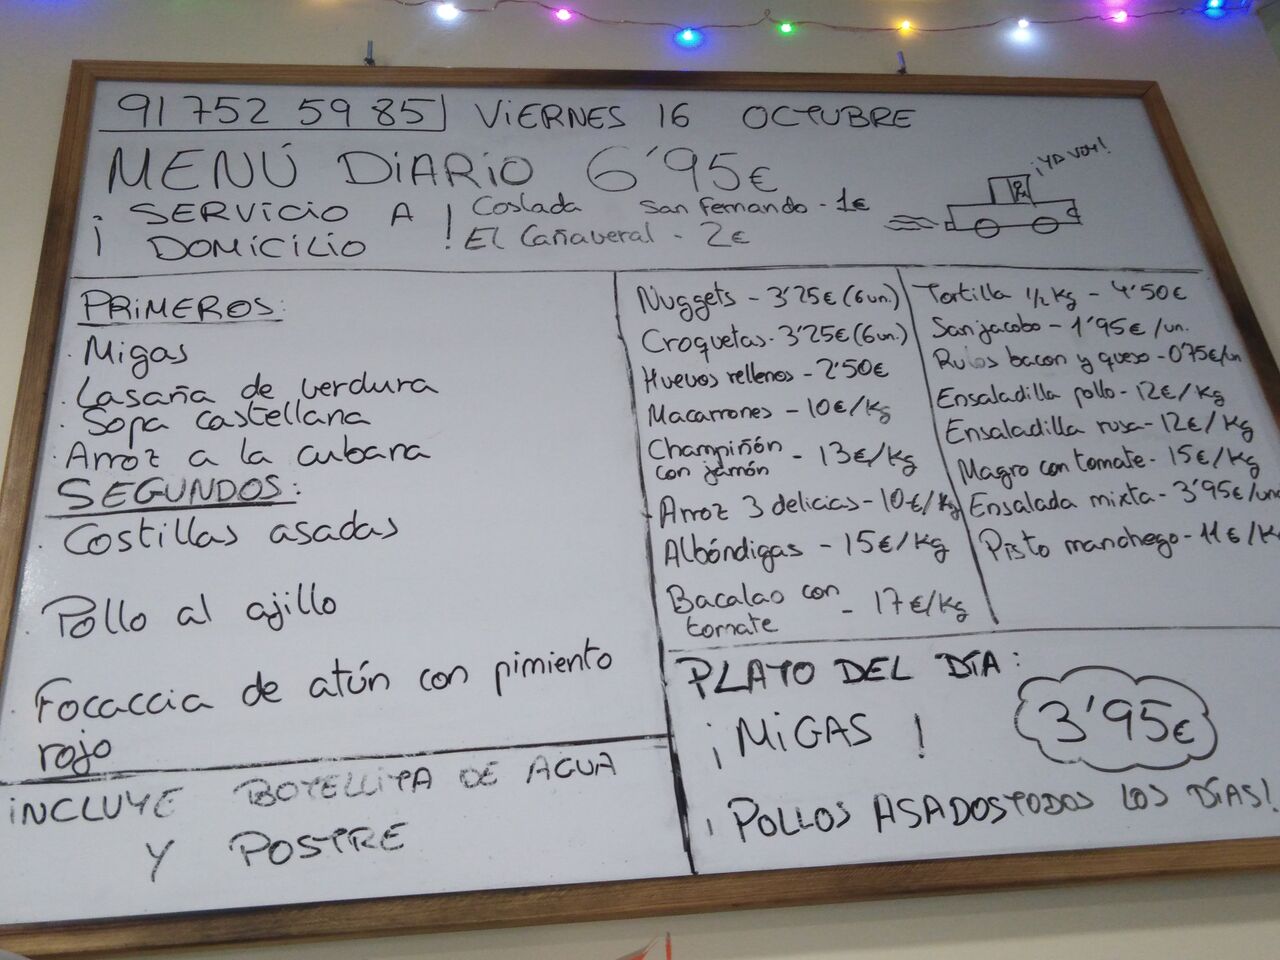 91 752 59 85 VIERNES 16 OCTUBRE
MENÚ DIARIO 6'95€
¡ SERVICIO A
¡ DOMICILIO !
Coslada San Fernando - 1€
El Cañaveral - 2€
¡YA VOY!
PRIMEROS:
· Migas
· Lasaña de verdura
· Sopa castellana
· Arroz a la cubana
SEGUNDOS:
· Costillas asadas
· Pollo al ajillo
· Focaccia de atún con pimiento
rojo
INCLUYE BOTELLITA DE AGUA
Y POSTRE
Nuggets - 3'25€ (6un.)
Croquetas - 3'25€ (6un.)
Huevos rellenos - 2'50€
Macarrones - 10€/Kg
Champiñón
con jamón - 13€/Kg
Arroz 3 delicias - 10€/Kg
Albóndigas - 15€/Kg
Bacalao con
tomate - 17€/Kg
Tortilla 1/2 Kg - 4'50€
Sanjacobo - 1'95€/un.
Rulos bacon y queso - 0'75€/un
Ensaladilla pollo - 12€/Kg
Ensaladilla rusa - 12€/Kg
Magro con tomate - 15€/Kg
Ensalada mixta - 3'95€/un
Pisto manchego - 11€/K
PLATO DEL DÍA:
¡MIGAS!
3'95€
¡POLLOS ASADOS TODOS LOS DÍAS!